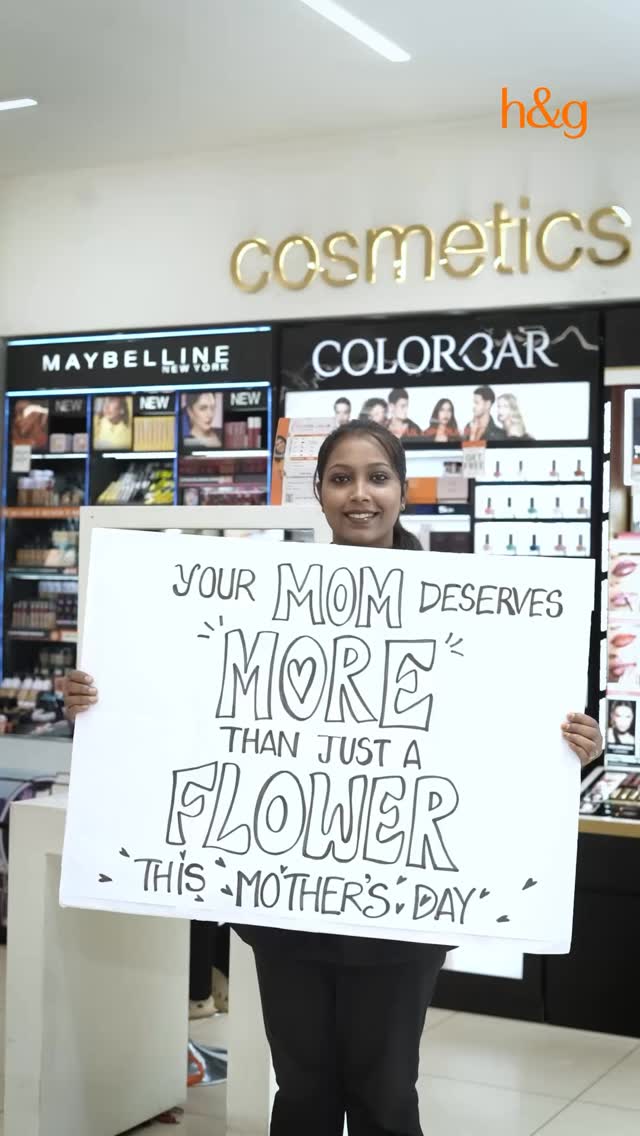 h&g
cosmetics
MAYBELLINE
NEW YORK
COLORBAR
NEW
NEW
NEW
YOUR MOM DESERVES
MORE
THAN JUST A
FLOWER
THIS MOTHER'S DAY